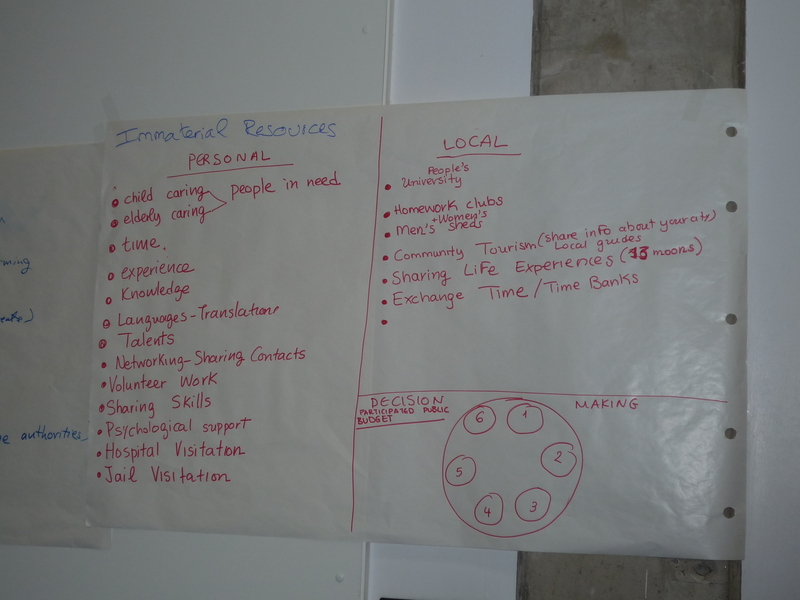 Immaterial Resources
PERSONAL
child caring
elderly caring
people in need
time.
experience
Knowledge
Languages-Translations
Talents
Networking-Sharing Contacts
Volunteer Work
Sharing Skills
Psychological support
Hospital Visitation
Jail Visitation
LOCAL
People's
University
Homework clubs
+Women's
Men's sheds
Community Tourism (share info about your
Local guides
Sharing Life Experiences (13 moons)
Exchange Time/Time Banks
DECISION MAKING
PARTICIPATED PUBLIC
BUDGET
1
2
3
4
5
6
authorities